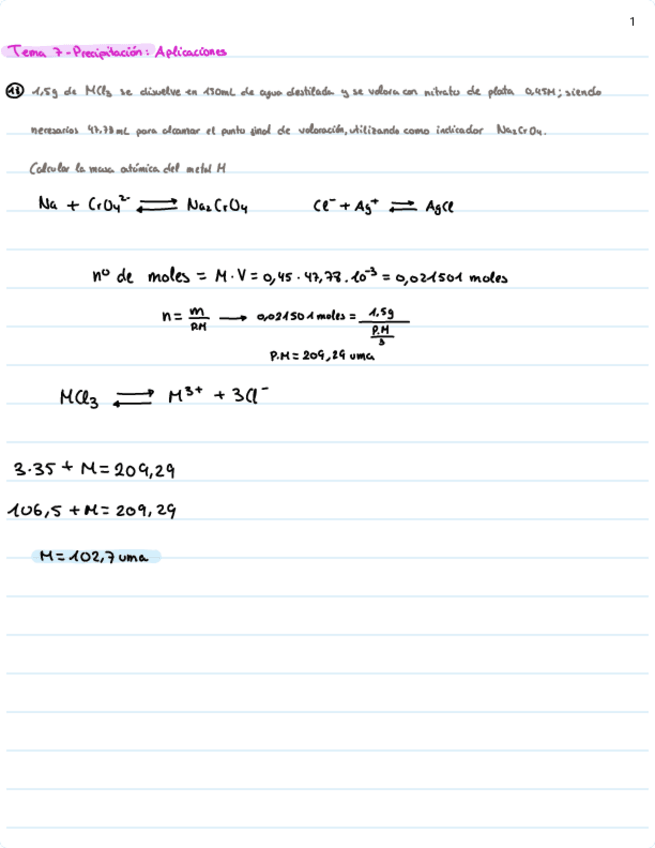 1
Tema 7 - Precipitación: Aplicaciones
13 1,5g de MCl₃ se disuelve en 130mL de agua destilada y se valora con nitrato de plata 0,45M; siendo
necesarios 47,78 mL para alcanzar el punto final de valoración, utilizando como indicador Na₂CrO₄.
Calcular la masa atómica del metal M
Na + CrO₄²⁻ ⇌ Na₂CrO₄ Cl⁻ + Ag⁺ ⇌ AgCl
nº de moles = M·V = 0,45 · 47,78 · 10⁻³ = 0,021501 moles
n = m/P.M → 0,021501 moles = 1,5g/(P.M/3)
P.M = 209,29 uma
MCl₃ ⇌ M³⁺ + 3Cl⁻
3·35 + M = 209,29
106,5 + M = 209,29
M = 102,7 uma